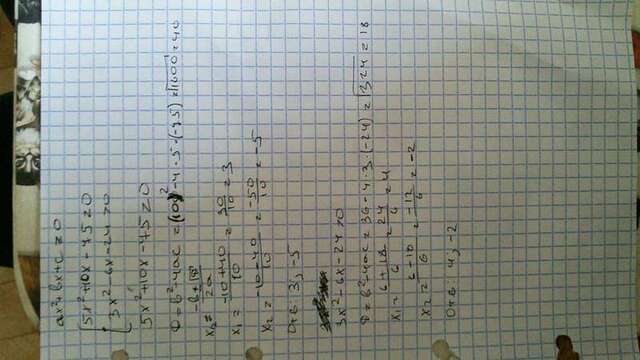 ax²+bx+c ≥0
{5x²+10x-75≥0
3x²-6x-24>0
5x²+10x-75≥0
D=b²-4ac = (10)²-4·5·(-75)=√1600=40
x₁= (-10+40)/10 = 30/10 = 3
x₂ = (-10-40)/10 = -50/10 = -5
Отв: 3; -5
3x²-6x-24>0
D=b²-4ac = 36-4·3·(-24)=√324=18
x₁= (6+18)/6 = 24/6 = 4
x₂= (6-18)/6 = -12/6 = -2
Отв: 4; -2